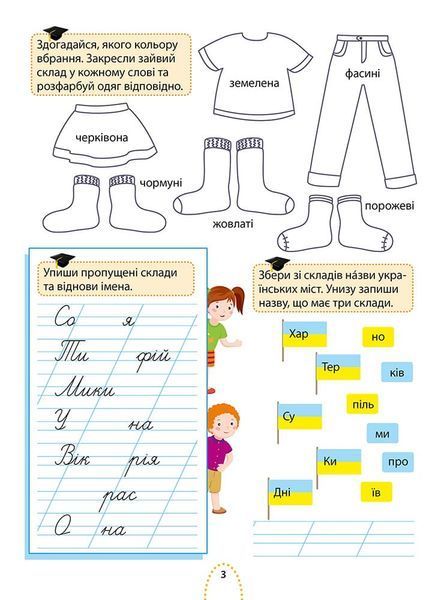 Здогадайся, якого кольору
вбрання. Закресли зайвий
склад у кожному слові та
розфарбуй одяг відповідно.
земелена
фасині
черківона
чормуні
жовлаті
порожеві
Упиши пропущені склади
та віднови імена.
Со я
Ти фій
Мики
У на
Вік рія
рас
О на
Збери зі складів на́зви укра-
їнських міст. Унизу запиши
назву, що має три склади.
Хар но
Тер ків
піль
Су ми
Ки про
Дні їв
3